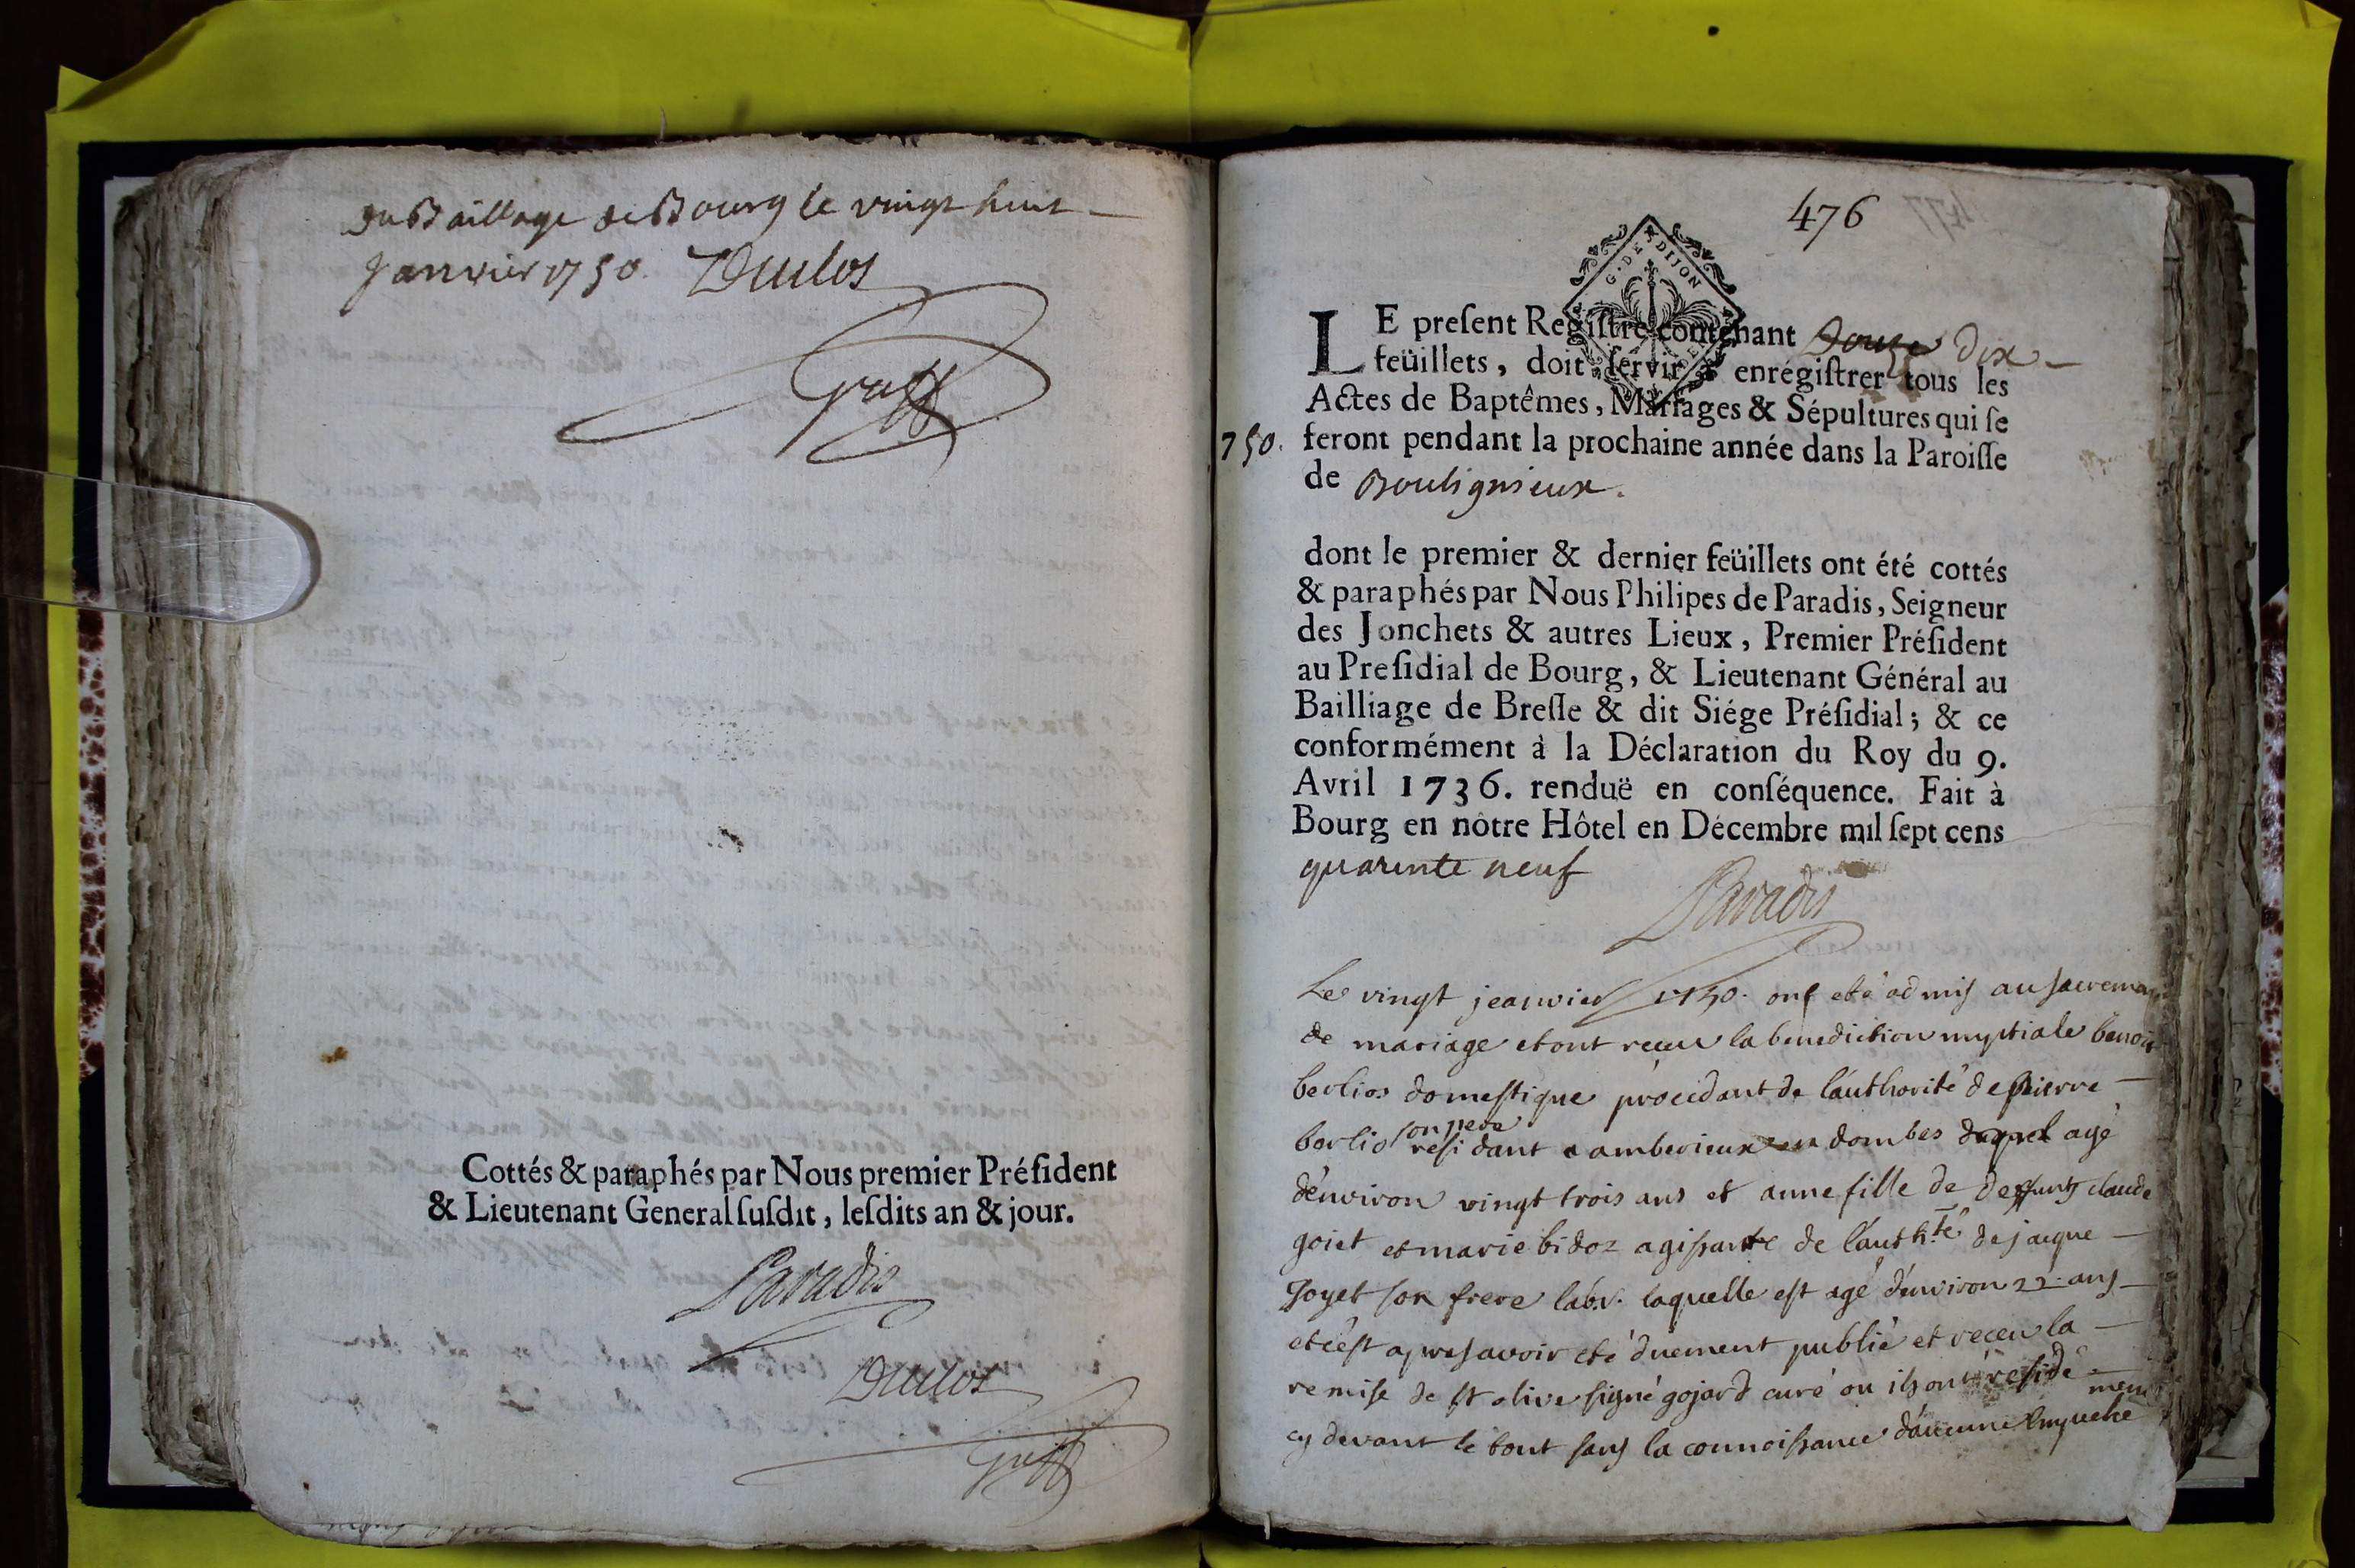 du Baillage de Bourg le vingt huit
Janvier 1750. Duclos
Cottés & paraphés par Nous premier Préſident
& Lieutenant General ſuſdit, leſdits an & jour.
Paradis
Duclos
476
G. DE DIJON
LE preſent Regiſtre contenant Douze dix
feüillets, doit ſervir à enrégiſtrer tous les
Actes de Baptêmes, Mariages & Sépultures qui ſe
750. feront pendant la prochaine année dans la Paroiſſe
de Bouligneux.
dont le premier & dernier feüillets ont été cottés
& paraphés par Nous Philipes de Paradis, Seigneur
des Jonchets & autres Lieux, Premier Préſident
au Preſidial de Bourg, & Lieutenant Général au
Bailliage de Breſſe & dit Siége Préſidial; & ce
conformément à la Déclaration du Roy du 9.
Avril 1736. renduë en conſéquence. Fait à
Bourg en nôtre Hôtel en Décembre mil ſept cens
quarente neuf
Paradis
Le vingt jeanvier 1750. ont eté admis au sacrement
de mariage et ont receu la benediction nuptiale benoit
berlios domestique procedant de l'authorité de pierre
berlio son pere residant a amberieux en dombes agé
d'environ vingt trois ans et anne fille de deffunts claude
goiet et marie bidoz agissante de l'auth.té de jacque
Goyet son frere lab.r. laquelle est agé d'environ 22. ans
et c'est apres avoir eté duement publié et receu la
remise de st olive signé gojard curé ou ils ont residé
cy devant le tout sans la connoissance d'aucune empeche
ment